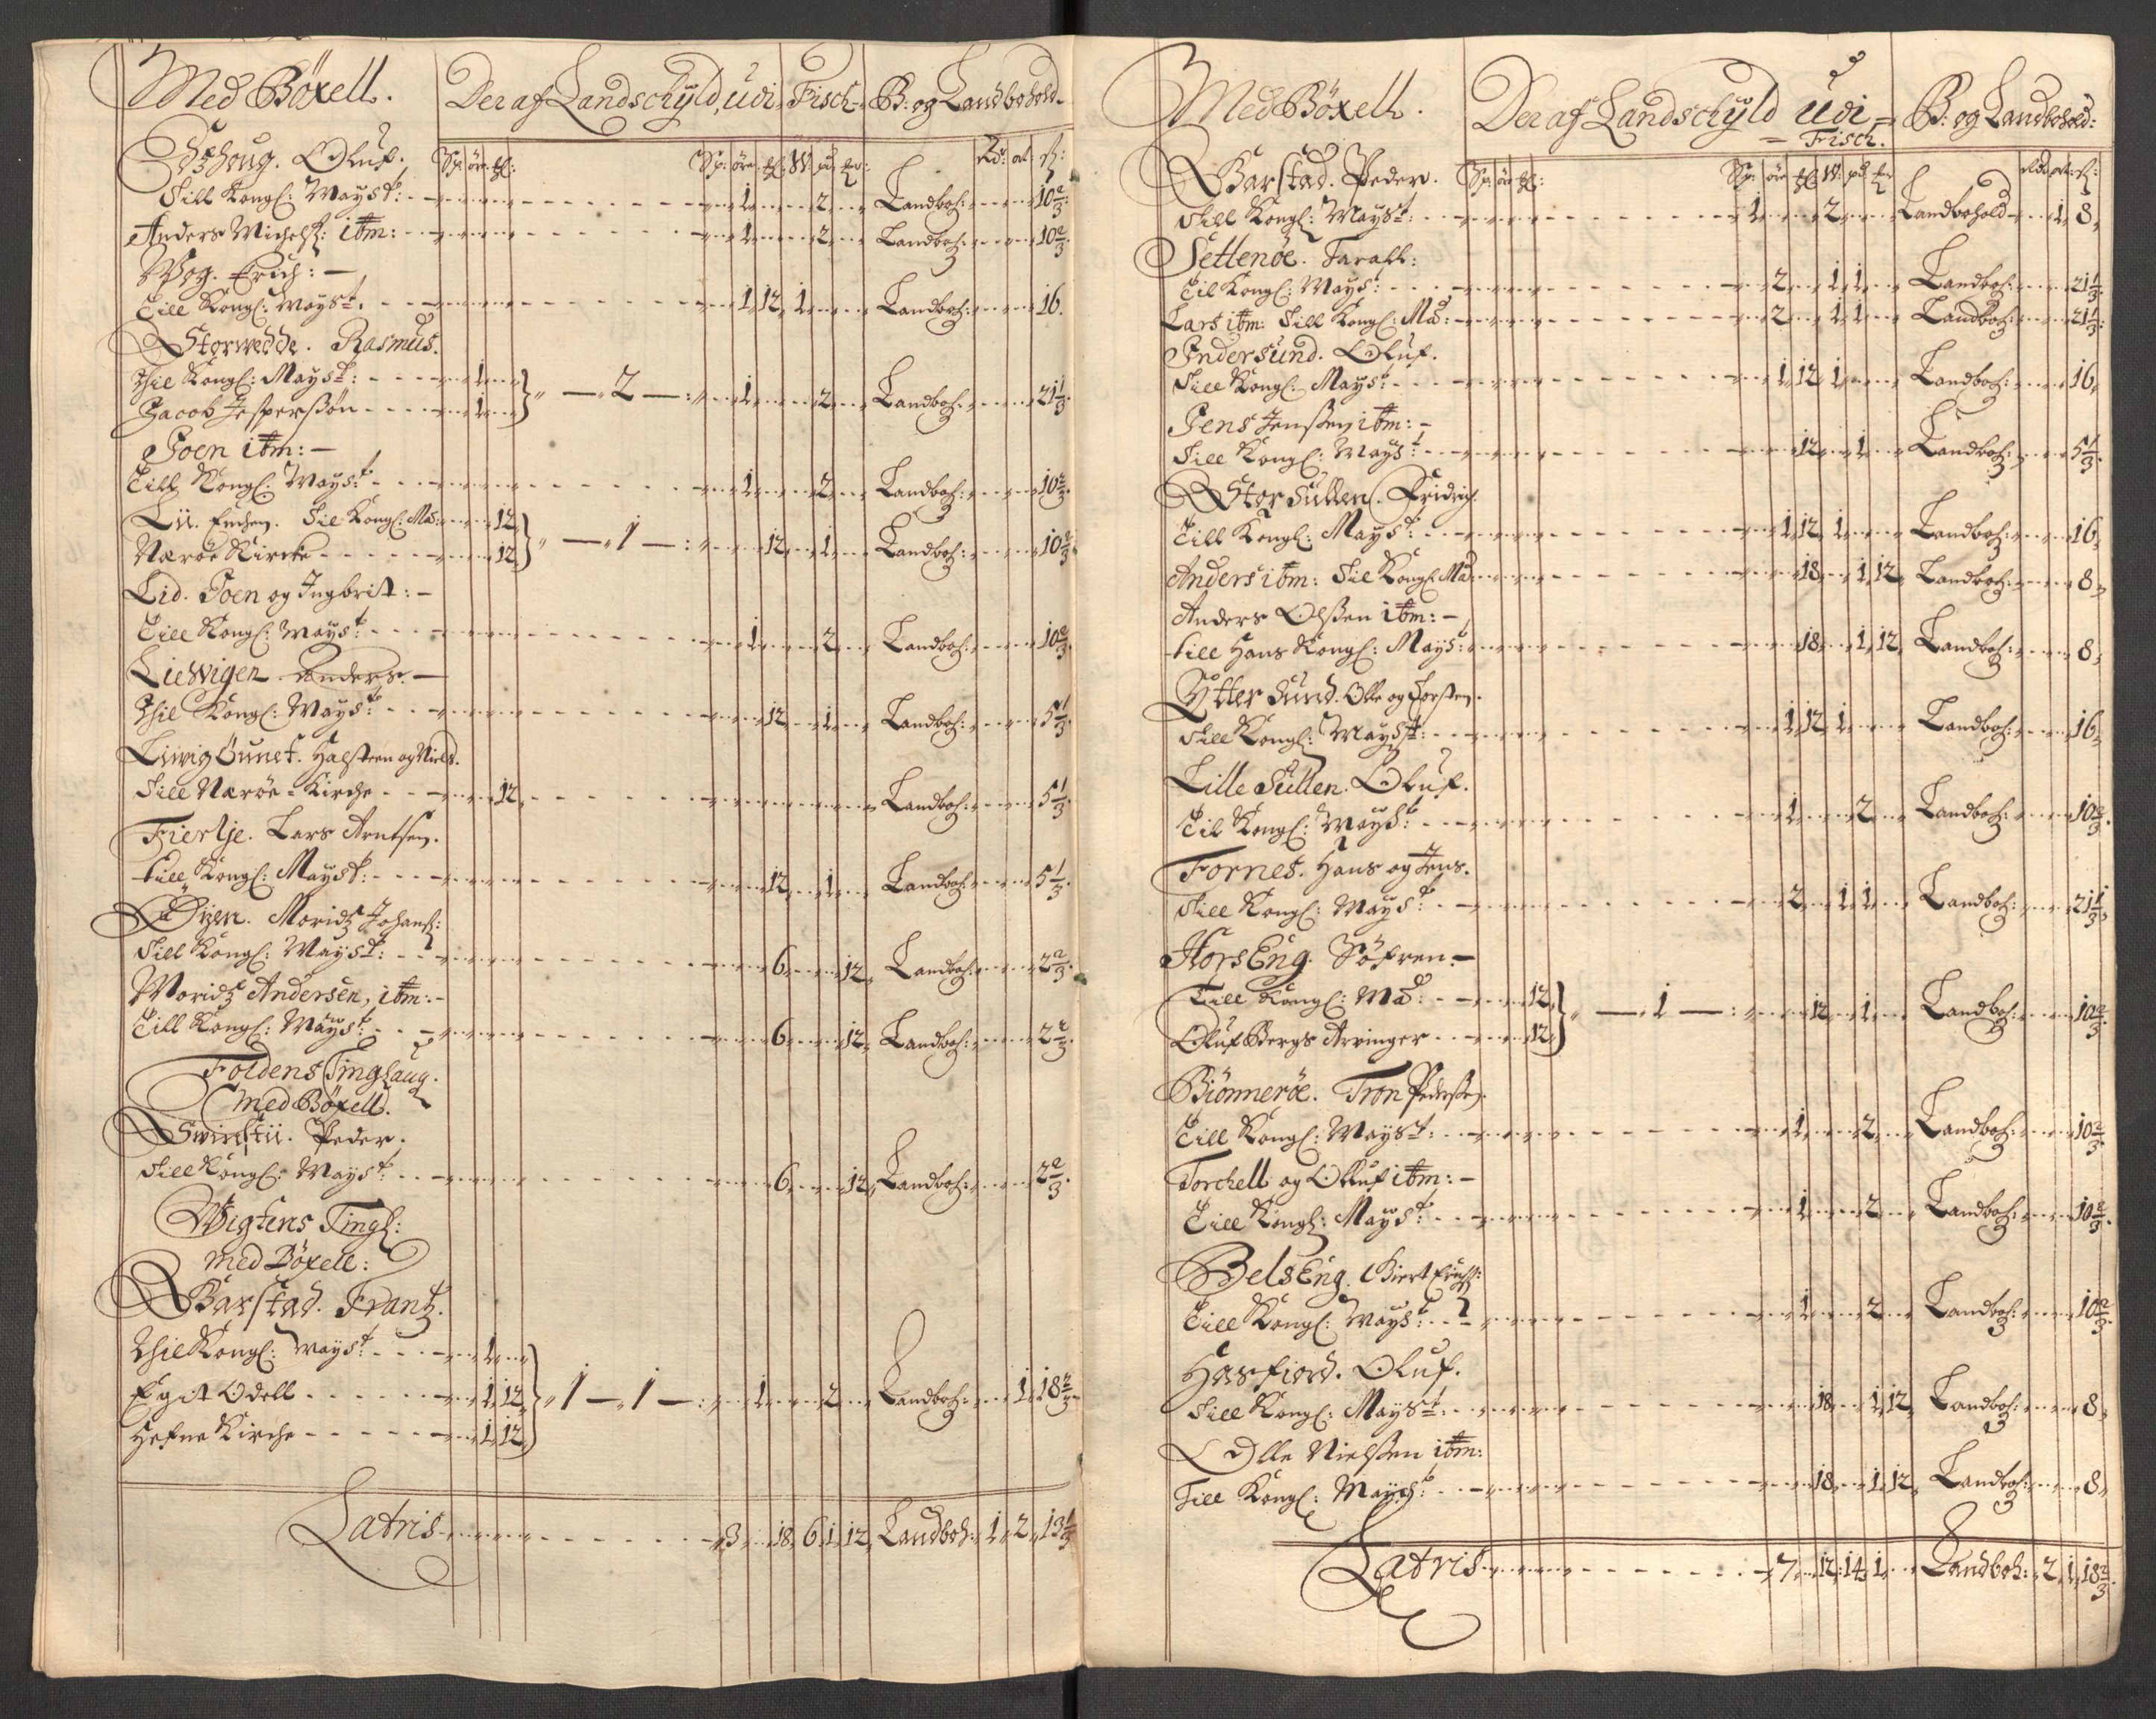 Med Böxell. Der af Landschyld, udi, Fisch B: og Landbohold
Sp: öre. ₮: Sp: öre. ₮: W. pd. ₮: Rd: ort. ß:
Oluf.
Till Kongl: Mayst: 1 2 Landboh: 10 2/3
Anders Michelß: itm: 1 2 Landboh: 10 2/3
Wog. Erich: —
Till Kongl: Mayst. 1 12 1 Landboh: 16
Storwedde. Rasmus.
Thil Kongl: Mayst: 1
Jacob Jesperssøn 1 } 2 — : 1 2 Landboh: 21 1/3
Joen itm: —
Till Kongl: Mayst: 1 2 Landboh: 10 2/3
Lii. Enchen. Til Kongl: Ma: 12
Nærøe Kircke 12 } 1 — : 12 1 Landboh: 10 2/3
Lid. Joen og Ingbrit: —
Till Kongl: Mayst: 1 2 Landboh: 10 2/3
Liewigen. Anders. —
Thil Kongl: Mayst: 12 1 Landboh: 5 1/3
Liwig Gunet. Halsteen og Niels.
Till Nærøe Kirche 12 Landboh: 5 1/3
Fiertje. Lars Arntsen.
till Kongl: Mayst: 12 1 Landboh: 5 1/3
Øyen. Moridtz Johanß:
Till Kongl: Mayst: 6 12 Landboh: 2 2/3
Moridtz Andersen, itm: —
Till Kongl: Mayst: 6 12 Landboh: 2 2/3
Foldens Tinglaug.
Med Böxell.
Peder.
Till Kongl: Mayst. 6 12 Landboh: 2 2/3
Wigtens Tingl:
Med Böxell:
Barstad. Frantz.
Thil Kongl: Mayst: 1
Egit Odell 1 12 } 1 — 1 — : 1 2 Landboh: 1 18 2/3
Hefne Kirche 1 12
Latris 3 18 6 1 12 Landboh: 1 2 13 1/3
Med Böxell. Der af Landschyld Udi = B: og Landbohold:
= Fisch.
Barstad. Peder. Sp: öre ₮: Sp: öre ₮ W. pd ₮ Rd. ort. ß:
Till Kongl: Mayst: 1 2 Landbohold 1 8
Settenöe. Tarall:
Til Kongl: Mayst: 2 1 1 Landboh: 21 1/3
Lars itm: Till Kongl: Ma: 2 1 1 Landboh: 21 1/3
Indersund. Oluf.
Till Kongl: Mayst: 1 12 1 Landboh: 16
Jens Jenssen itm: —
Till Kongl: Mayst: 12 1 Landboh: 5 1/3
Stor Sullen. Fridrich
Till Kongl: Mayst: 1 12 1 Landboh: 16
Anders itm: Til Kongl: Ma: 18 1 12 Landboh: 8
Anders Olssen itm: —
till Hans Kongl: Mayst: 18 1 12 Landboh: 8
Ytter Sund. Olle og Torsten.
Till Kongl: Mayst: 1 12 1 Landboh: 16
Lille Sullen. Oluf.
Til Kongl: Mayst: 1 2 Landboh: 10 2/3
Fornes. Hans og Jens.
Till Kongl: Mayst: 2 1 1 Landboh: 21 1/3
HorsEng. Söfren. —
Till Kongl: Ma: 12
Oluf Bergs Arvinger 12 } 1 — : 12 1 Landboh: 10 2/3
Biönneröe. Tron Pederssen.
Till Kongl: Mayst: 1 2 Landboh: 10 2/3
Torchell og Olluf itm: —
Till Kongl: Mayst: 1 2 Landboh: 10 2/3
BelsEng. Giert Erichß:
Till Kongl: Mayst: 1 2 Landboh: 10 2/3
Hasfiord. Oluf.
Till Kongl: Mayst: 18 1 12 Landboh: 8
Olle Nielssen itm:
Till Kongl: Mayst: 18 1 12 Landboh: 8
Latris 7 12 14 1 Landboh: 2 1 18 2/3